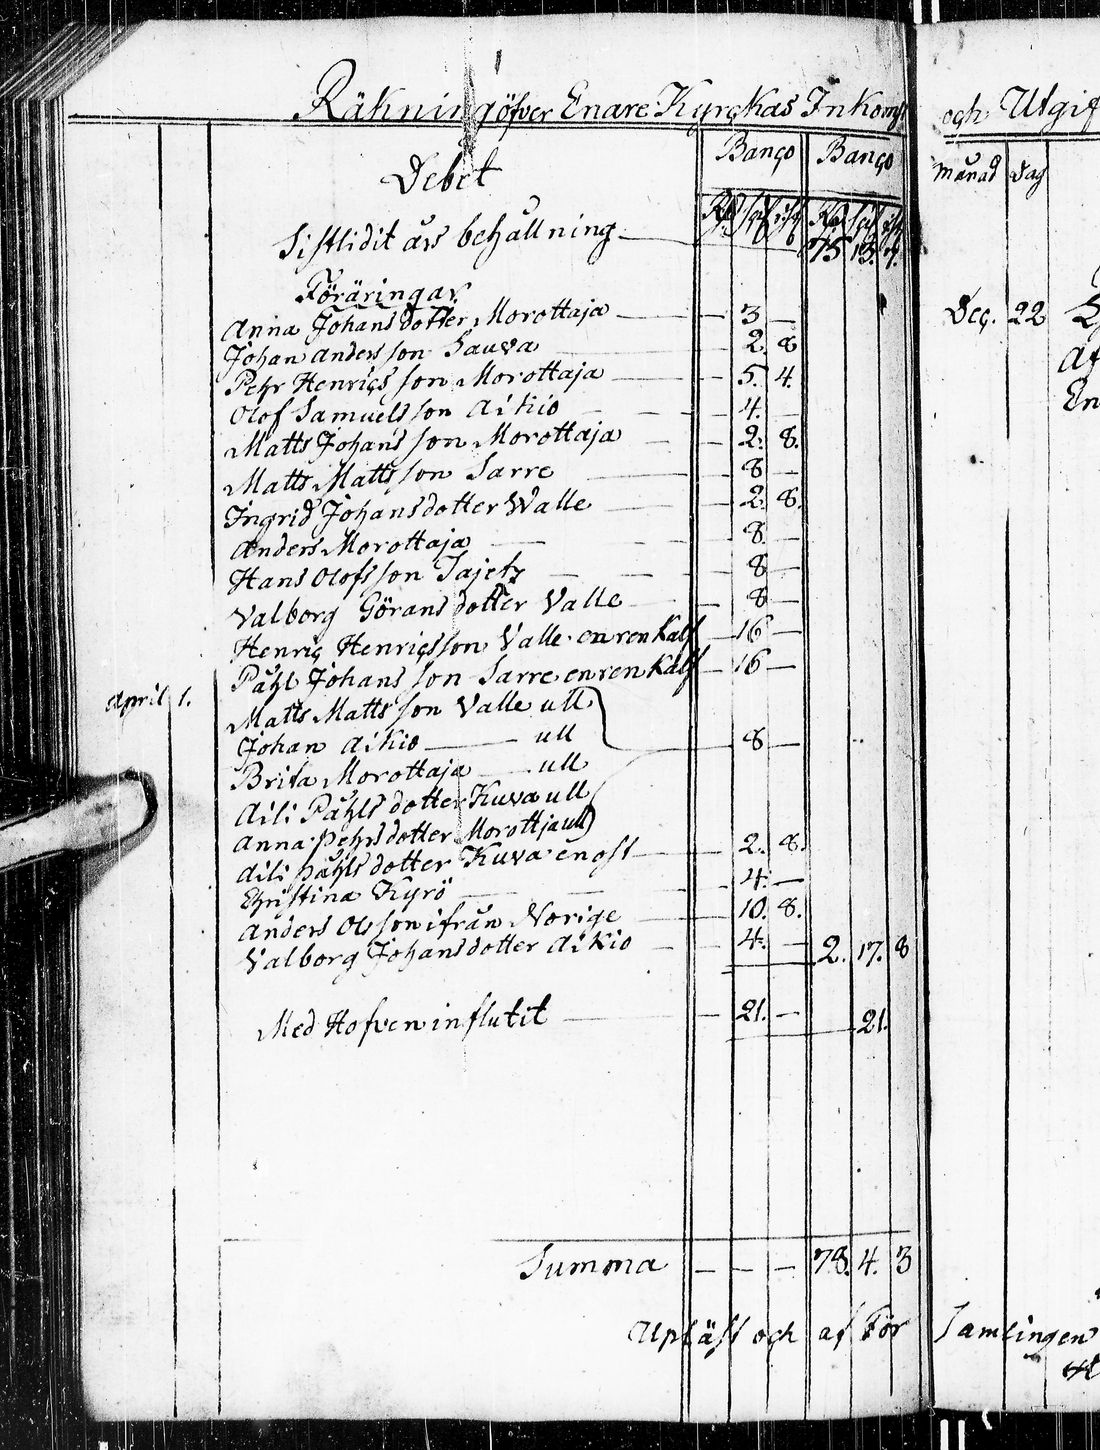 Räkning öfver Enare Kyrckas Inkomst och Utgif
Debet Banco Banco Månad Dag
Rd sk rst Rd sk rst
Sistlidit års behållning 75 13. 7.
Föräringar
Anna Johans dotter Morottaja — 3 — Dec. 22
Johan Andersson Sauva — 2. 8
Pehr Henricsson Morottaja — 5. 4. Af
Olof Samuelsson Aikio — 4. — En
Matts Johansson Morottaja — 2. 8.
Matts Mattsson Sarre — 8 —
Ingrid Johansdotter Walle — 2. 8.
Anders Morottaja — 8 —
Hans Olofsson Sajetz — 8 —
Valborg Görans dotter Valle — 8 —
Henric Henricsson Valle en ren kalf — 16 —
Påhl Johansson Sarre en ren kalf — 16 —
April 1. Matts Mattsson Valle ull
Johan Aikio — ull — 8 —
Brita Morottaja — ull
Aili Påhls dotter Kuva ull
Anna Pehrs dotter Morottja ull
Aili Påhls dotter Kuva en ost — 2. 8.
Christina Kyrö — 4. —
Anders Olsson ifrån Norige — 10. 8.
Valborg Johansdotter Aikio — 4. — 2. 17. 8
Med Hofven influtit — 21. — 21.
Summa — — — 78. 4. 3
Upläst och af För Samlingen